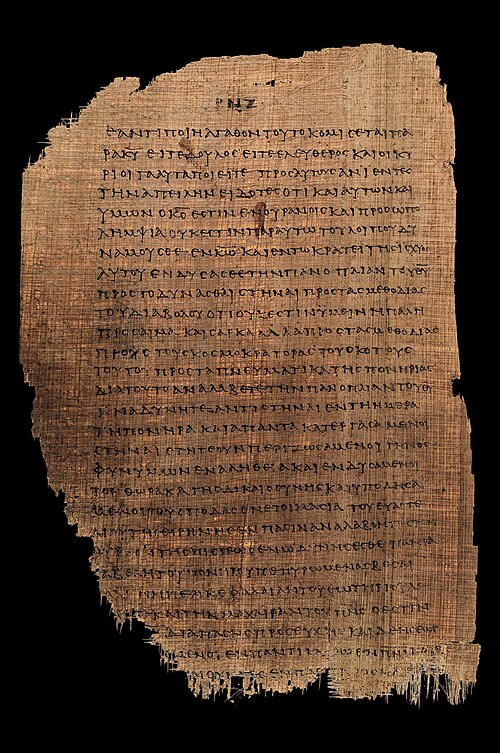 ΡΝΖ
ΕΑΝΤΙΠΟΙΗΑΓΑΘΟΝΤΟΥΤΟΚΟΜΙΣΕΤΑΙΠΑ
ΡΑΚΥ ΕΙΤΕΔΟΥΛΟΣΕΙΤΕΕΛΕΥΘΕΡΟΣΚΑΙΟΙΚΥ
ΡΙΟΙΤΑΑΥΤΑΠΟΙΕΙΤΕ ΠΡΟΣΑΥΤΟΥΣΑΝΙΕΝΤΕΣ
ΤΗΝΑΠΕΙΛΗΝΕΙΔΟΤΕΣΟΤΙΚΑΙΑΥΤΩΝΚΑΙ
ΥΜΩΝΟΚΣΕΣΤΙΝΕΝΟΥΡΑΝΟΙΣΚΑΙΠΡΟΣΩΠΟ
ΛΗΜΨΙΑΟΥΚΕΣΤΙΝΠΑΡΑΥΤΩΤΟΥΛΟΙΠΟΥΔΥ
ΝΑΜΟΥΣΘΕ ΕΝΚΩ ΚΑΙΕΝΤΩΚΡΑΤΕΙΤΗΣΙΣΧΥΟΣ
ΑΥΤΟΥΕΝΔΥΣΑΣΘΕΤΗΝΠΑΝΟΠΛΙΑΝΤΟΥΘΥ
ΠΡΟΣΤΟΔΥΝΑΣΘΑΙΣΤΗΝΑΙΠΡΟΣΤΑΣΜΕΘΟΔΙΑΣ
ΤΟΥΔΙΑΒΟΛΟΥΟΤΙΟΥΚΕΣΤΙΝΥΜΕΙΝΗΠΑΛΗ
ΠΡΟΣΑΙΜΑ ΚΑΙΣΑΡΚΑΑΛΛΑΠΡΟΣΤΑΣΜΕΘΟΔΙΑΣ
ΠΡΟΣ ΤΟΥΣΚΟΣΜΟΚΡΑΤΟΡΑΣΤΟΥΣΚΟΤΟΥΣ
ΤΟΥΤΟΥΠΡΟΣΤΑΠΝΕΥΜΑΤΙΚΑΤΗΣΠΟΝΗΡΙΑΣ
ΔΙΑΤΟΥΤΟΑΝΑΛΑΒΕΤΕΤΗΝΠΑΝΟΠΛΙΑΝΤΟΥΘΥ
ΙΝΑΔΥΝΗΤΕΑΝΤΙΣΤΗΝΑΙΕΝΤΗΗΜΕΡΑ
ΤΗΠΟΝΗΡΑ ΚΑΙΑΠΑΝΤΑ ΚΑΤΕΡΓΑΣΑΜΕΝΟΙ
ΣΤΗΝΑΙΣΤΗΤΕΟΥΝΠΕΡΙΖΩΣΑΜΕΝΟΙΤΗΝΟΣ
ΦΥΝΥΜΩΝΕΝΑΛΗΘΕΙΑΚΑΙΕΝΔΥΣΑΜΕΝΟΙ
ΤΟΝΘΩΡΑΚΑΤΗΣΔΙΚΑΙΟΣΥΝΗΣΚΑΙΥΠΟΔΗΣΑ
ΜΕΝΟΙΤΟΥΣΠΟΔΑΣΕΝΕΤΟΙΜΑΣΙΑ ΤΟΥΕΥΑΓΓΕ
ΛΙΟΥΤΗΣΕΙΡΗΝΗΣΕΝΠΑΣΙΝΑΝΑΛΑΒΟΝΤΕΣ
ΤΗΣΠΙΣΤΕΩΣΕΝΩΔΥΝΗΣΕΣΘΕ
ΠΕΠΥΡΩΜΕΝΑΣΒΕΣΑΙ
ΠΕΡΙΚΕΦΑΛΑΙΑΝΤΟΥΣΩΤΗΡΙΟΥ
ΚΑΙΤΗΝΜΑΧΑΙΡΑΝΤΟΥΠΝΣ ΟΕΣΤΙΝ
ΔΙΑΠΑΣΗΣΠΡΟΣΕΥΧΗΣ ΚΑΙΔΕΗΣΕΩΣ
ΜΕΝΟΙΕΝΠΑΝΤΙΚΑΙΡΩΕΝΠΝΙ